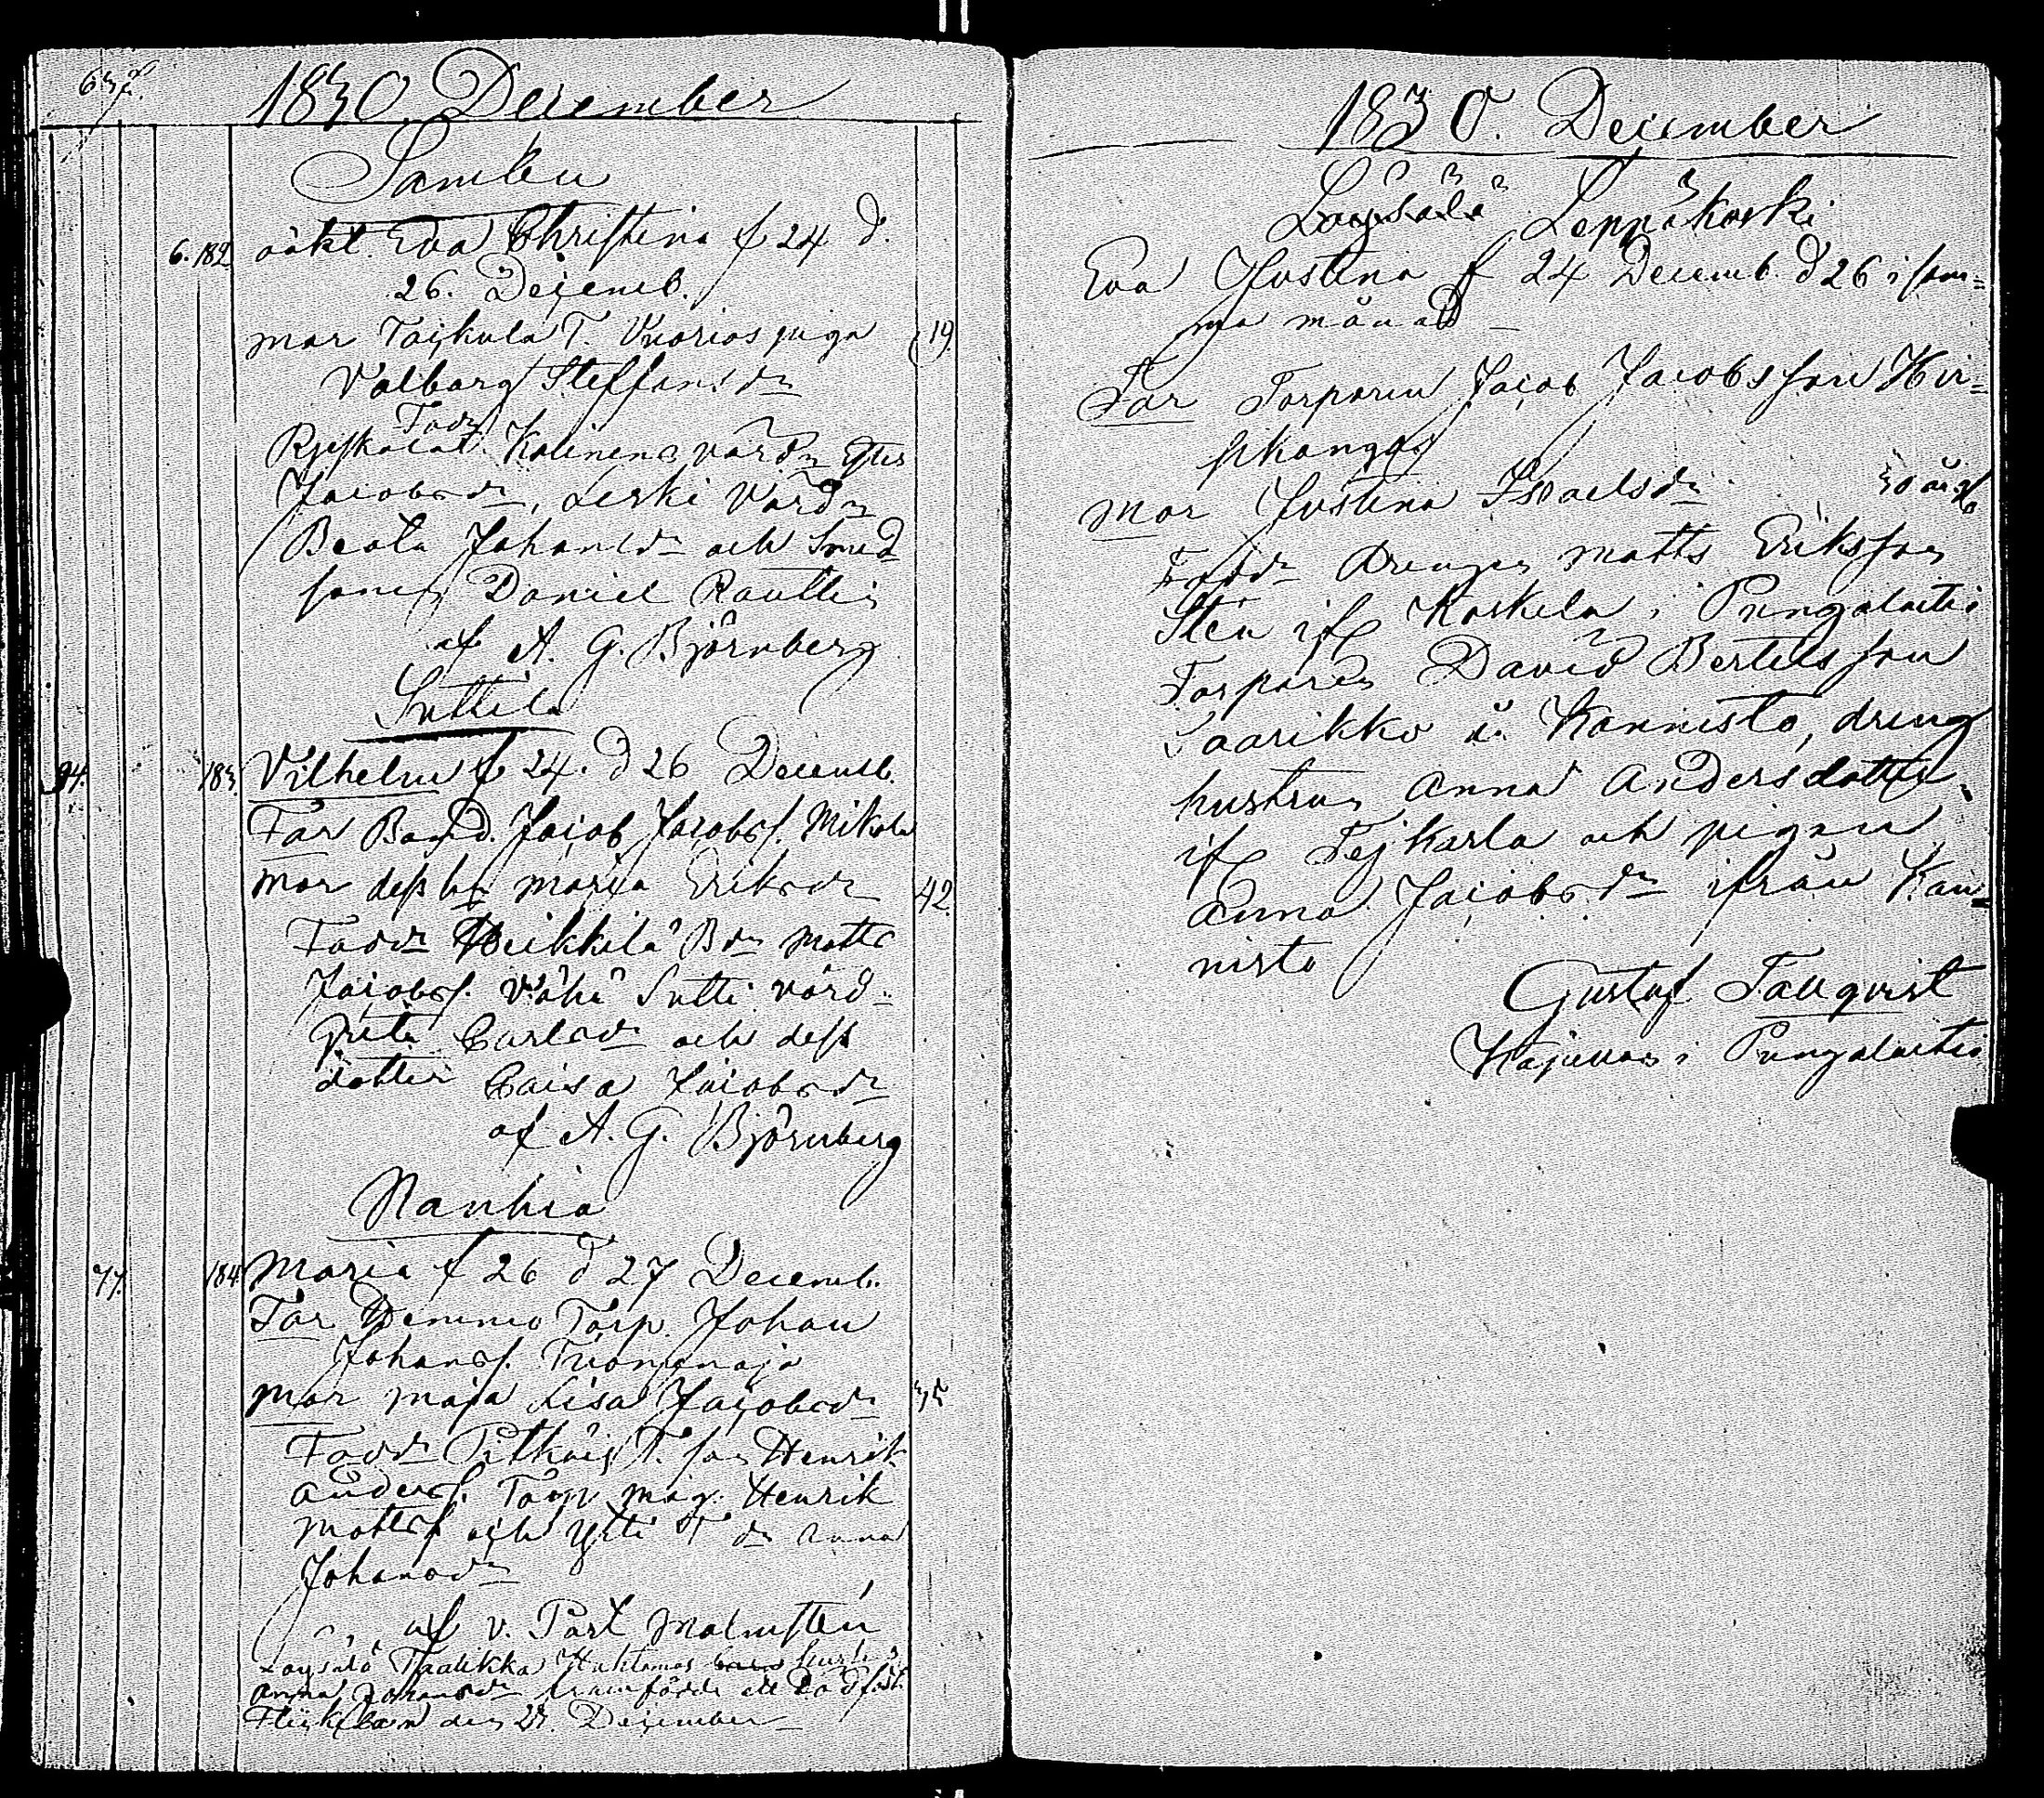 1830. December
Samku
6. 182. oäkt. Eva Christina f 24 d.
26. Decemb.
mor T. Vuorios piga 19.
Valborg Steffansdr
Faddr
Kalinens värdn
Jacobsdr, Leski värdn
Beata Johansdr och Smed
sonen Daniel Rautti
af A. G. Björnberg
Suttila
94. 183. Vilhelm f 24. d 26 Decemb.
Far Bond. Jacob Jacobss. Mikola
mor dess h. Maria Eriksdr 42.
Faddr Heikkilä Bdn Matts
Jacobss. Vähä Sutti värd
Carlsdr och dess
dotter Caisa Jacobsdr
af A. G. Björnberg
Nanhia
77. 184. Maria f 26 d 27 Decemb.
Far Torp. Johan
Johanss.
mor Maja Lisa Jacobsdr 35
Faddr T. son Henrik
Anderss. Torp måg Henrik
Mattss och T dr Anna
Johansdr
af v. Past Malmsten
Loysälö Huhtamas hustru
Anna Johansdr framfödde ett dödfödt
Flickebarn den December
1830. December
Löysälä Leppäkoski
Eva Justina f 24 Decemb. d 26 i sam=
ma månad
Far Torparen Jacob Jacobsson Hir=
sikangas
mor Justina Israelsdr 30 år
Faddr Drengen Matts Eriksson
Sten ifr Koskela i Pungalaitio
Torparen David Bertelsson
Saarikko i Kannisto, dreng
hustrun Anna Andersdotter
ifr Tejkarla och pigan
Anna Jacobsdr ifrån Kan=
nisto
Gustaf Tallqvist
i Pungalaitio